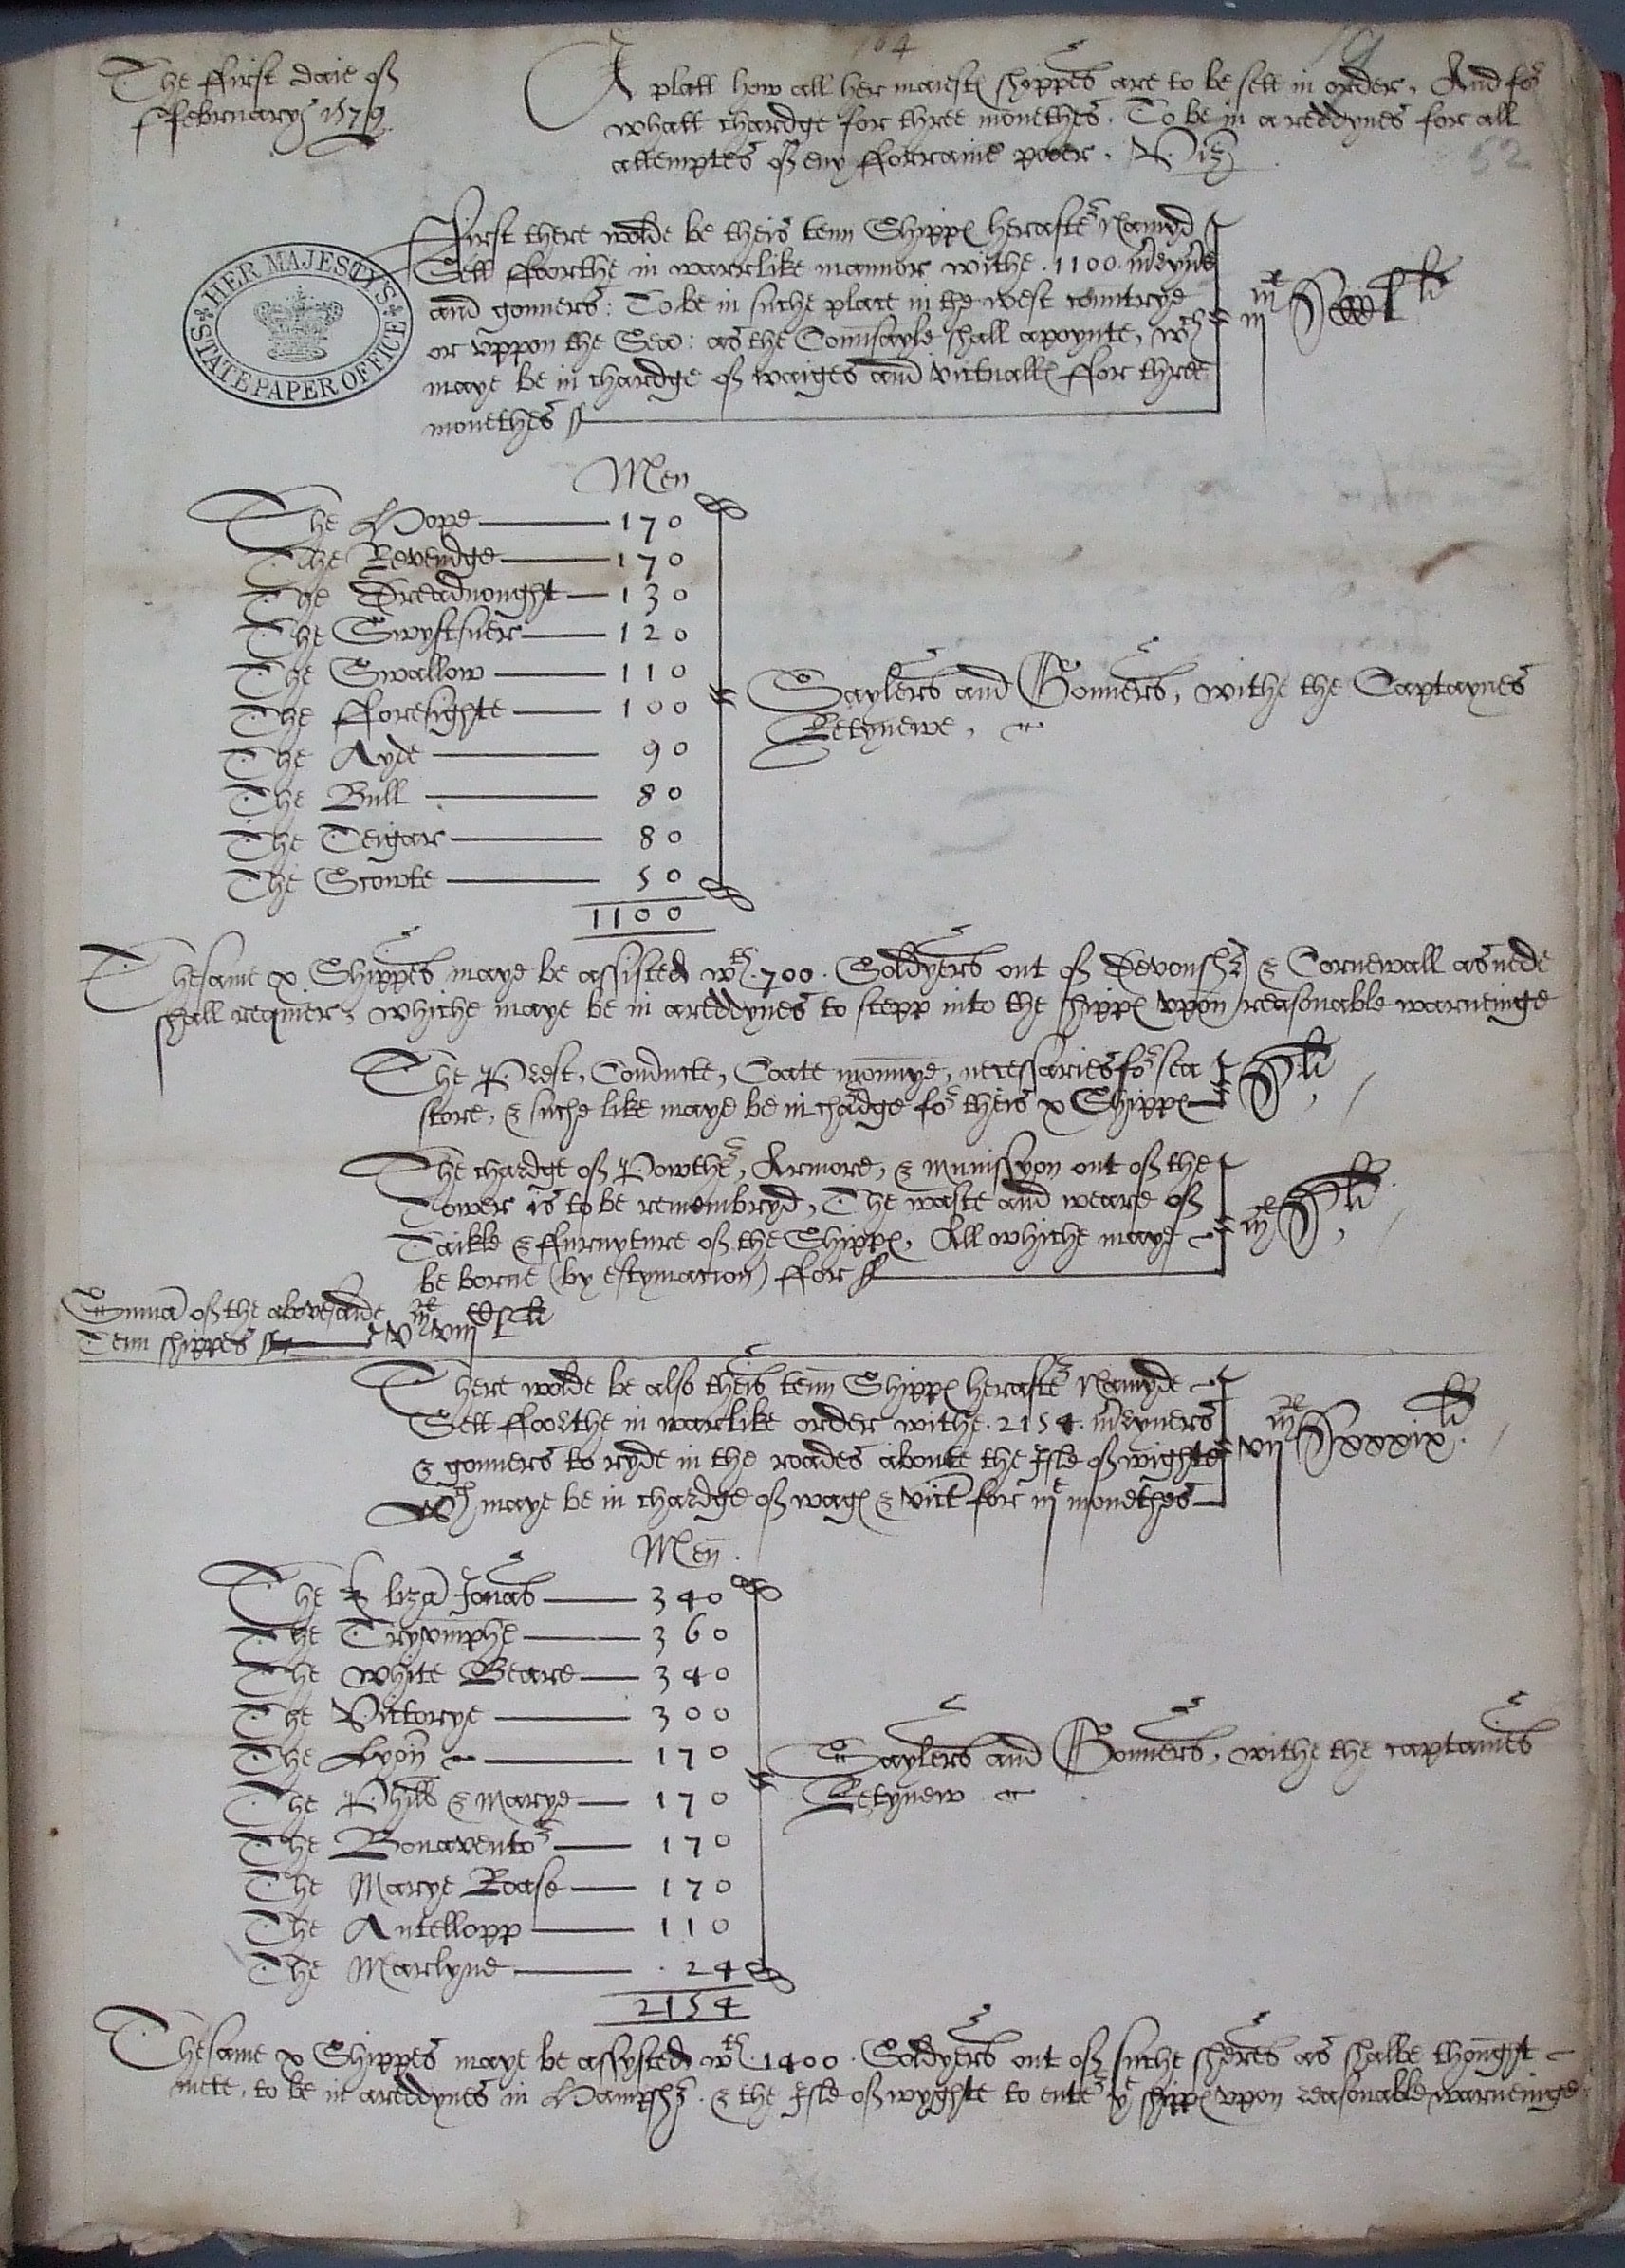 104
The ffirst daie of
ffebruary 1579
52
A platt how all her maiest shippes are to be sett in order, And for
whatt chardge for three monethes. To be in a reddynes for all
attemptes of eny fforraine poer. Viz
First there wolde be theis tenn Shipp heraftr Namyd
Sett ffoorthe in warrlike mannor withe .1100. m
and gonners: To be in suche place in the west countrye
or vppon the Sea: as the Counsayle shall apoynte, wch
maye be in chardge of waiges and victuall ffor three
monethes
HER MAJESTY'S
STATE PAPER OFFICE
Men
The Hope 170
The Revendge 170
The Dreadnought 130
The Swyftsuer 120
The Swallow 110
The fforesighte 100
The Ayde 90
The Bull 80
The Teigar 80
The Scowte 50
1100
Saylers and Gonners, withe the Captaynes
Retynewe,
Thesame x Shippes maye be assisted wth .700. Soldyers out of Devonsh & Cornewall as nede
shall requier, whiche maye be in areddynes to stepp into the shipp vpon reasonable warneinge
The Prest, Conducte, Coate monnye, necessaries for sea
store, & suche like maye be in chardge for theis x Shipp
The chardge of Powthr, Armore, & munissyon out of the
Tower is to be remembryd, The waste and weare of
Taikle & ffurnyture of the Shipp, All whiche maye
be borne (by estymacion) ffor
Suma of the abovesaide
Tenn shippes
There wolde be also theis tenn Shipp heraftr Namyde
Sett ffoorthe in warlike order withe .2154. maryners
& gonners to ryde in the roades aboute the Isle of wighte
wch maye be in chardge of wag & vict for iij monethes
Men
The Eliza Jonas 340
The Tryvmphe 360
The white Beare 340
The Victorye 300
The Lyon 170
The Phill & marye 170
The Bonaventor 170
The Marye Roase 170
The Antellopp 110
The Marlyne 24
2154
Saylers and Gonners, withe the captaines
Retynew
Thesame x Shippes maye be assysted wth .1400. Soldyers out of suche sheres as shalbe thought
mete, to be in areddynes in Hampsh. & the Isle of wyghte to enter ye shipp vpon reasonable warneinge